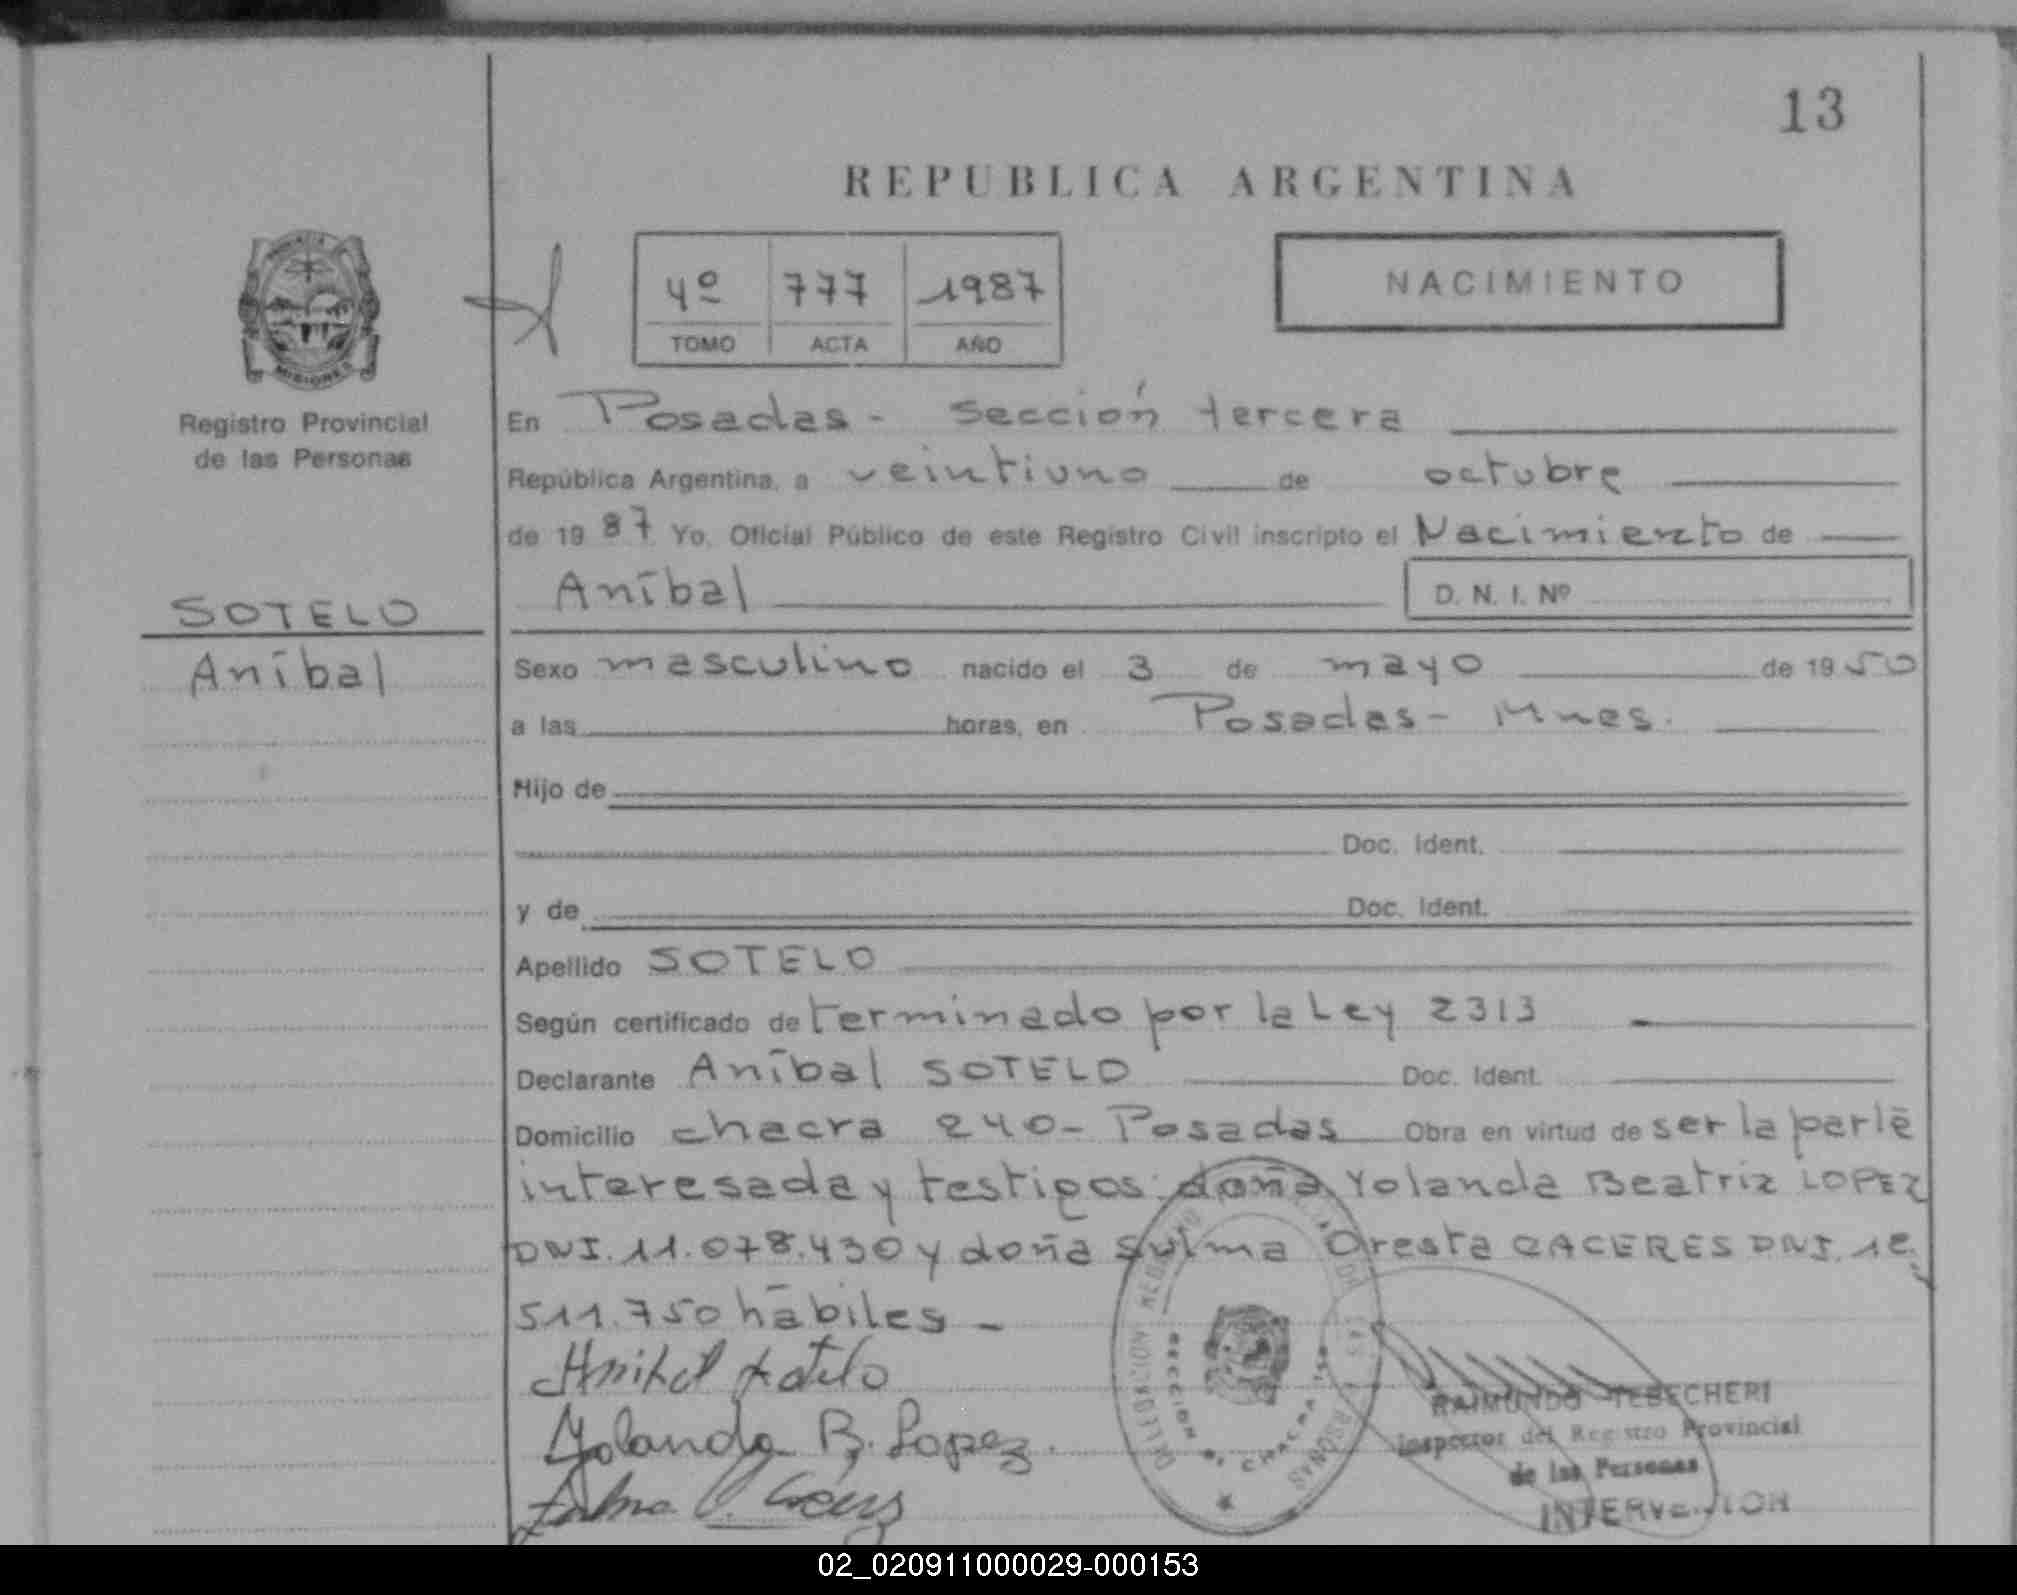 13
REPUBLICA ARGENTINA
MISIONES
Registro Provincial
de las Personas
4º 777 1987
TOMO ACTA AÑO
NACIMIENTO
En Posadas - sección tercera
República Argentina, a veintiuno de octubre
de 19 87 Yo, Oficial Público de este Registro Civil inscripto el Nacimiento de
Aníbal D. N. I. Nº
SOTELO
Aníbal
Sexo masculino nacido el 3 de mayo de 19 50
a las horas, en Posadas - Mnes.
Hijo de
Doc. Ident.
y de Doc. Ident.
Apellido SOTELO
Según certificado de terminado por la Ley 2313
Declarante Aníbal SOTELO Doc. Ident.
Domicilio chacra 240 - Posadas Obra en virtud de ser la parte
interesada y testigos: doña Yolanda Beatriz LOPEZ
DNI. 11.078.430 y doña Sulma Oresta CACERES DNI.
511.750 hábiles -
Anibal Sotelo
Yolanda B. Lopez.
RAIMUNDO TEBECHERI
Inspector del Registro Provincial
de las Personas
INTERVENCION
02_020911000029-000153